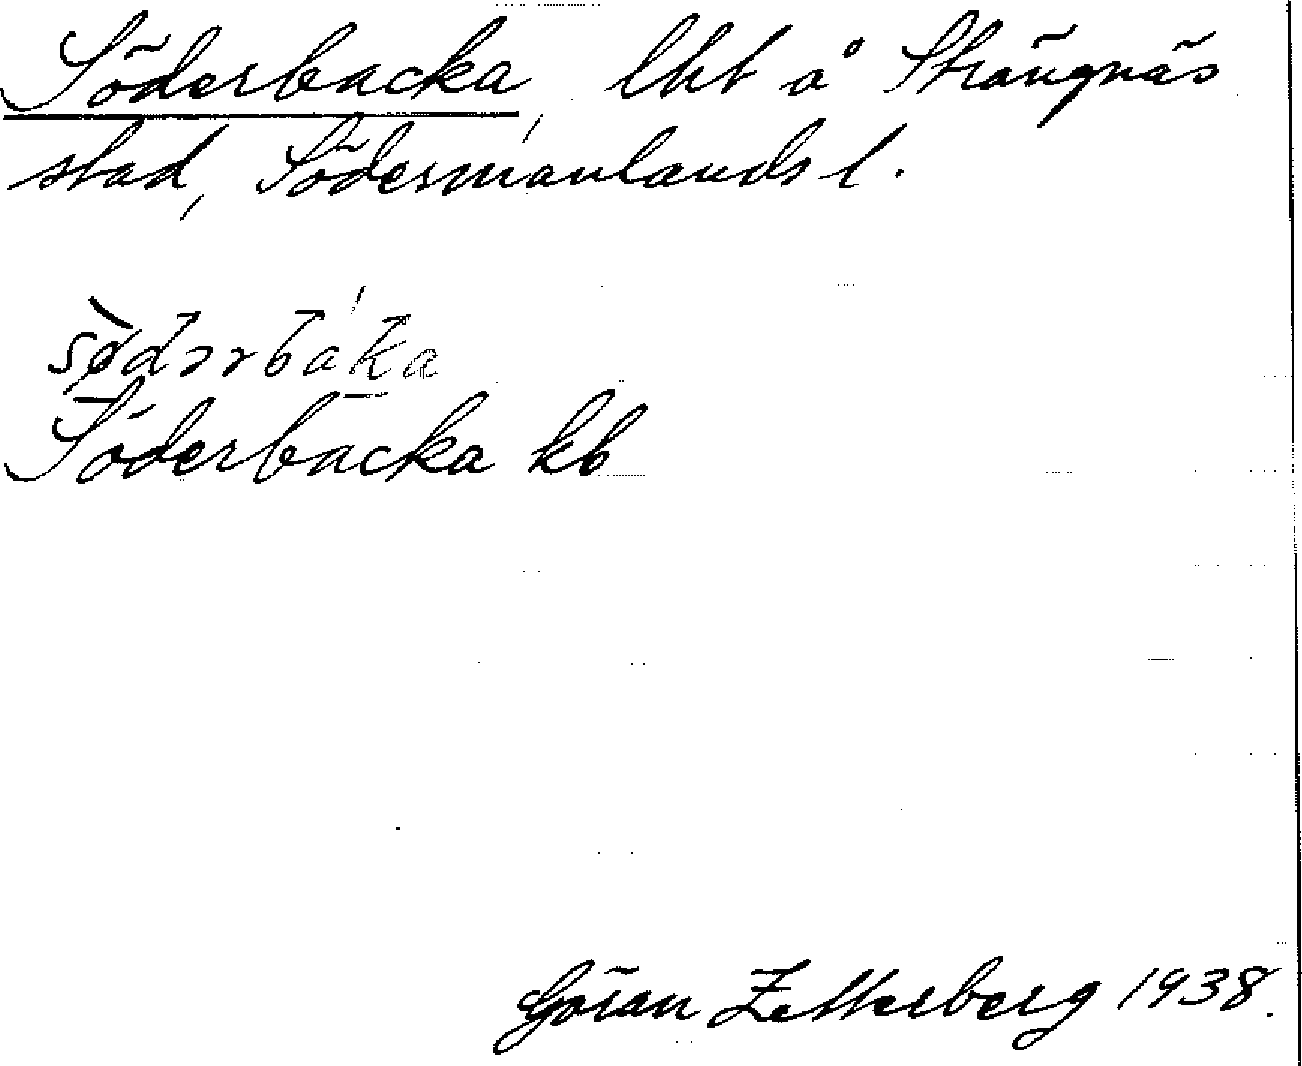 Söderbacka, lht å Strängnäs
stad, Södermanlands l.
sø̀dərbáka
Söderbacka kb
Göran Zetterberg 1938.